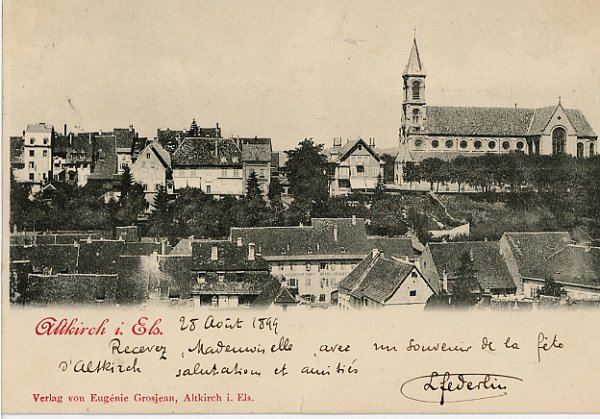 Altkirch i. Els. 28 Août 1899
Recevez, Mademoiselle, avec un souvenir de la fête
d'Altkirch salutations et amitiés
Lfederlin
Verlag von Eugénie Grosjean, Altkirch i. Els.